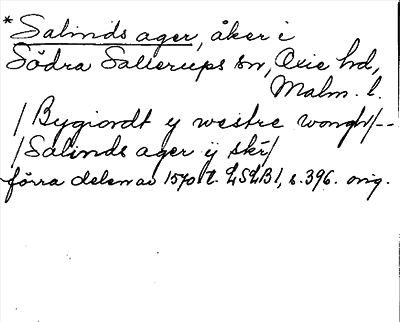 *Salinds ager, åker i
Södra Sallerups sn, Oxie hd,
Malm. l.
/Bygiordt y westre wongh/--
/Salinds ager ÿ skr/
förra delen av 1570 t. LSLB 1, s. 396. orig.